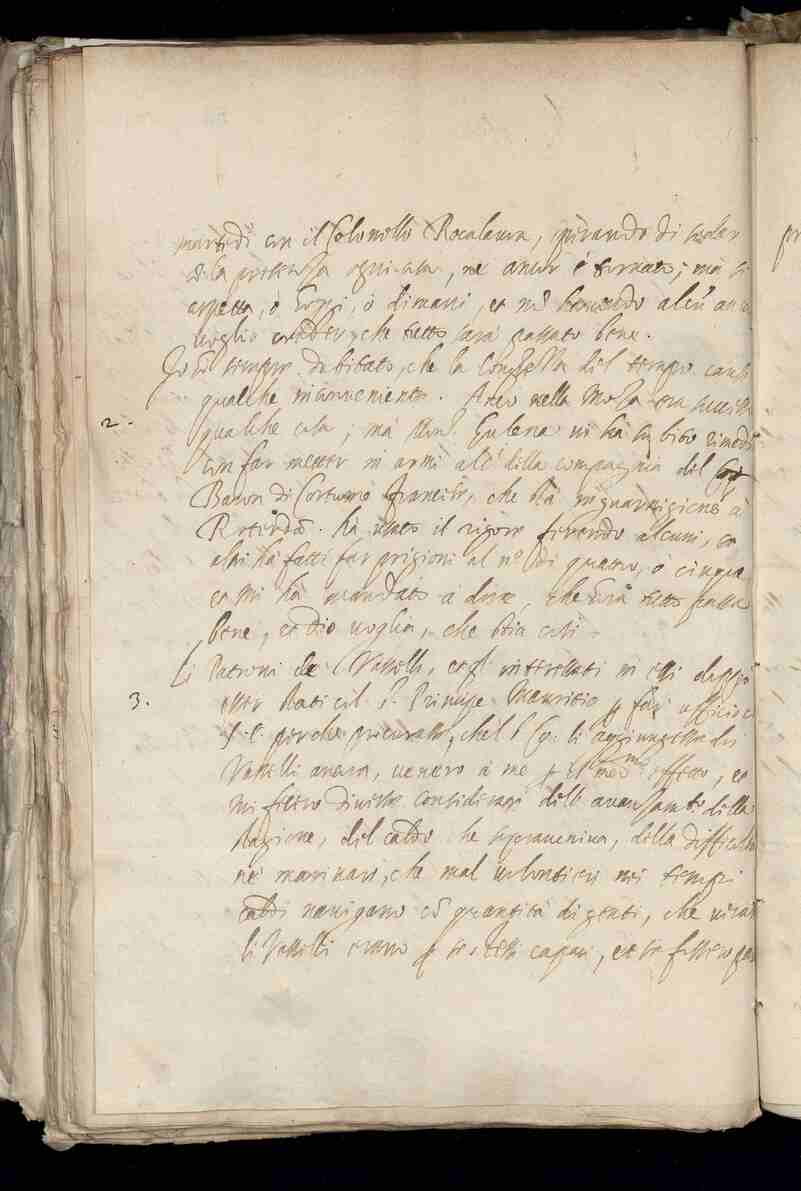 martedì con il Colonello Rocalaura, sperando di veder
di la presenza ogni cosa, nè ancor è tornato; mà si
aspetta, ò hoggi, ò dimani, et nõ havendo alcũ
voglio creder, che tutto sarà passato bene.
Io hò sempre dubitato, che la longhezza del tempo causi
qualche inconveniente. Anco nella Mosa era
2.
qualche cosa; mà Mons.r Gulena vi hà subito rimediato
con far metter in armi alc.i della compagnia del
Baron di Cortumè francese, che stà in guarnigione à
Roterdã. hà usato il rigore ferendo alcuni, et
altri hà fatti far prigioni al n.o di quattro, ò cinque
et mi hà mandato à dire, che sarà tutto passato
bene, et dio voglia, che stia così.
Li Patroni de Vasselli, et gl'interessati in essi doppò
3.
esser stati col S.r Principe Mauritio p far officio
S. E. perche procurasse, che'l li aggiungesse dei
Vasselli ancora, vennero à me p il med.mo effetto, et
mi fecero diverse considerationi dell'avansam.to della
stagione, del caldo che sopraveniva, della difficoltà
nei marinari, che mal volontieri nei tempi
caldi navigano cõ quantità di genti, che
li Vasselli erano p se stessi capaci, et se fossero